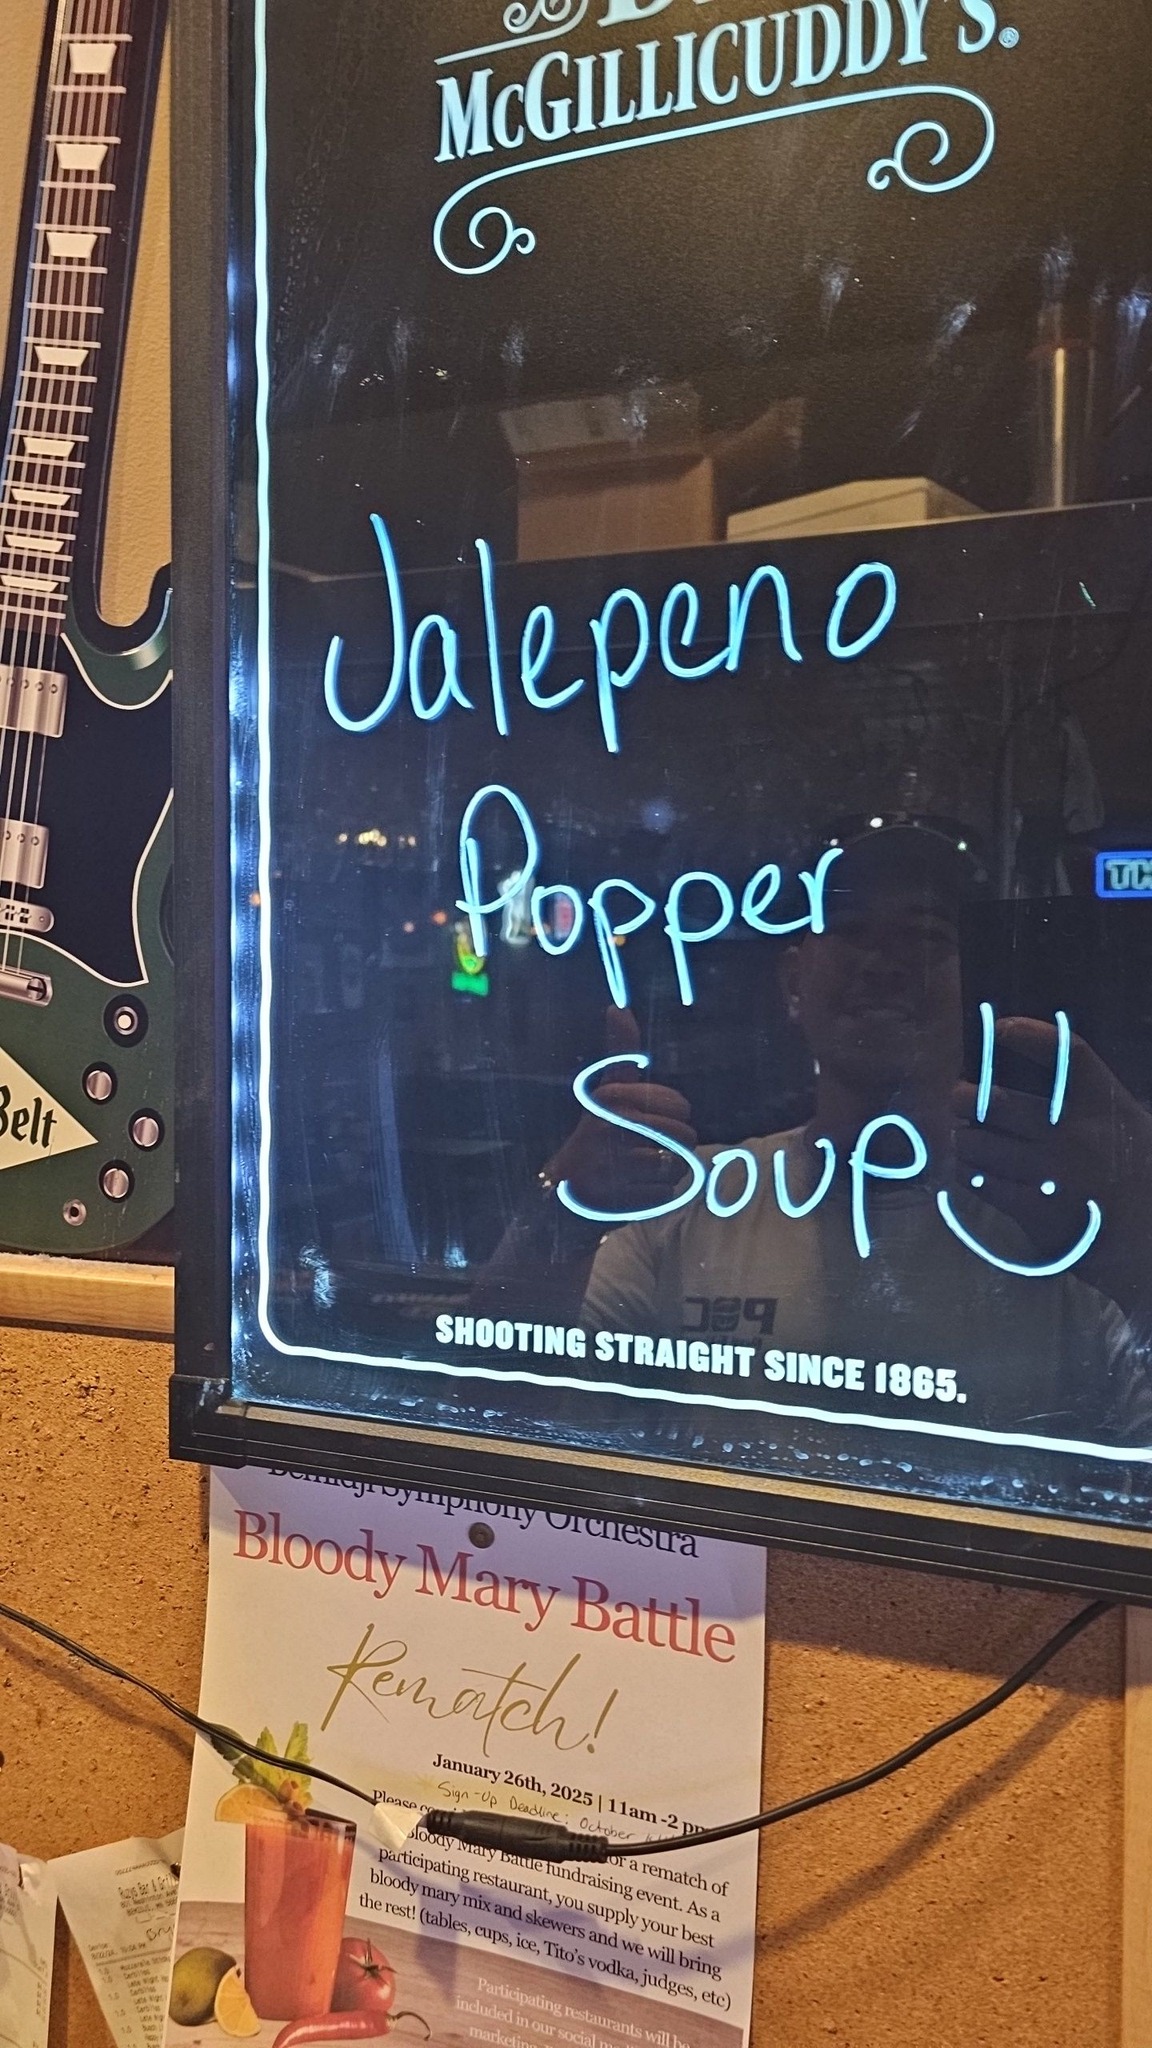 McGILLICUDDY'S.®
Jalepeno
Popper
Soup!!
SHOOTING STRAIGHT SINCE 1865.
Belt
Bemidji Symphony Orchestra
Bloody Mary Battle
Rematch!
January 26th, 2025 | 11am-2 p
Sign-Up Deadline: October
Please
for a rematch of
Bloody Mary Battle fundraising event. As a
participating restaurant, you supply your best
bloody mary mix and skewers and we will bring
the rest! (tables, cups, ice, Tito's vodka, judges, etc)
Participating restaurants will be
included in our social
marketing